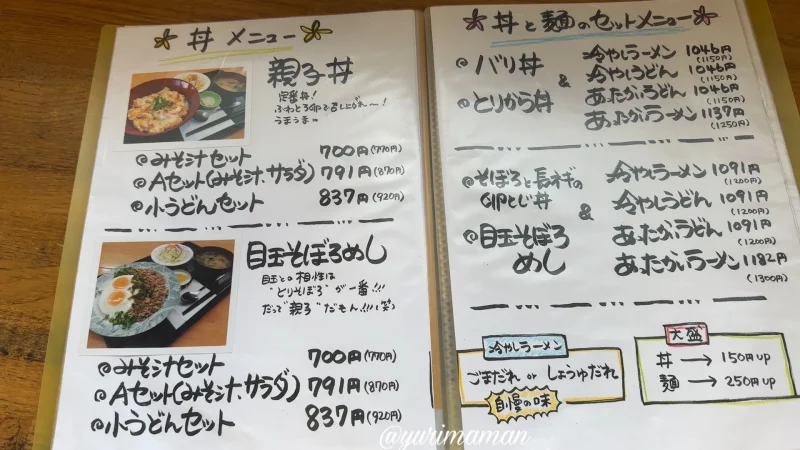 丼 メニュー
親子丼
定番丼!
ふわとろ卵で召し上がれ〜!
うまうま
◎みそ汁セット 700円(770円)
◎Aセット(みそ汁、サラダ) 791円(870円)
◎小うどんセット 837円(920円)
目玉そぼろめし
目玉との相性は
"とりそぼろ"が一番!!
だって"親子"だもん!!!(笑)
◎みそ汁セット 700円(770円)
◎Aセット(みそ汁、サラダ) 791円(870円)
◎小うどんセット 837円(920円)
丼と麺のセットメニュー
◎バリ丼
&
◎とりから丼
冷やしラーメン 1046円
(1150円)
冷やしうどん 1046円
(1150円)
あったかいうどん 1046円
(1150円)
あったかいラーメン 1137円
(1250円)
◎そぼろと長ネギの
卵とじ丼
&
◎目玉そぼろ
めし
冷やしラーメン 1091円
(1200円)
冷やしうどん 1091円
(1200円)
あったかいうどん 1091円
(1200円)
あったかいラーメン 1182円
(1300円)
冷やしラーメン
ごまだれ or しょうゆだれ
自慢の味
大盛
丼 → 150円UP
麺 → 250円UP
@yurimaman